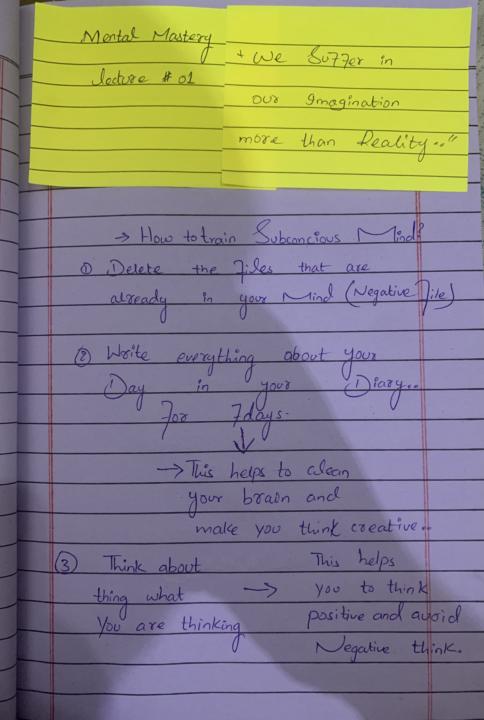 Mental Mastery
lecture # 01
+ We Suffer in
our Imagination
more than Reality.."
→ How to train Subconcious Mind?
① Delete the Files that are
already in your Mind (Negative File)
② Write everything about your
Day in your Diary..
For 7days.
↓
→ This helps to clean
your brain and
make you think creative..
③ Think about
thing what
You are thinking
→ This helps
you to think
positive and avoid
Negative think.